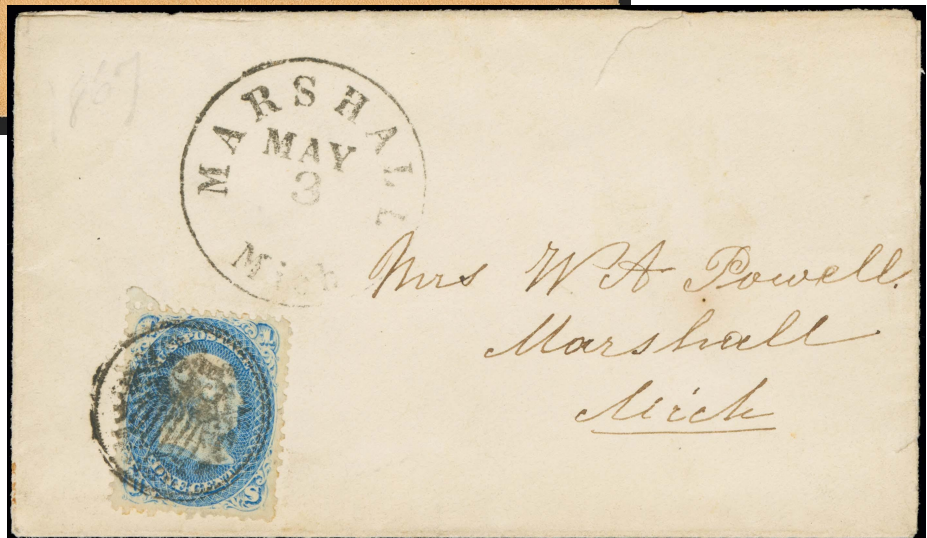 MARSHALL
MAY
3
Mich
Mrs W A Powell.
Marshall
Mich
U.S. POSTAGE
ONE CENT